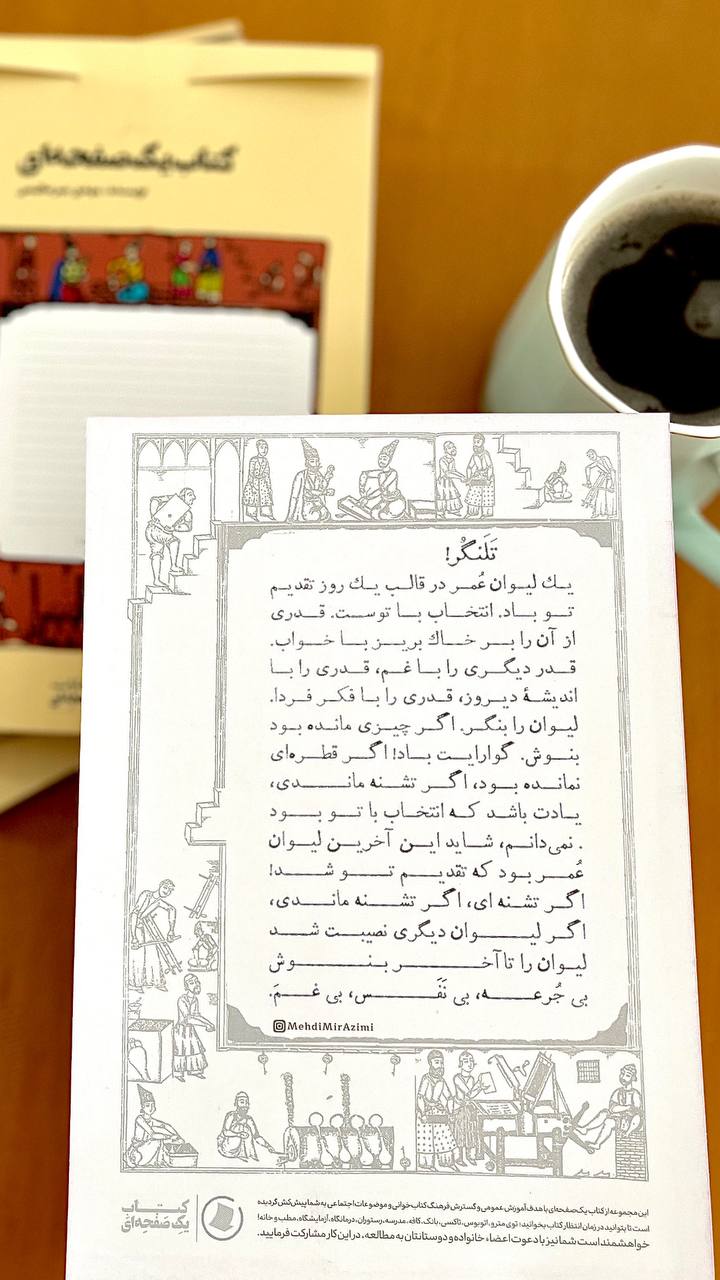 کتاب یک صفحه‌ای
تَلَنگُر!
یک لیوان عُمر در قالب یک روز تقدیم
تو باد. انتخاب با توست. قدری
از آن را بر خاک بریز با خواب.
قدر دیگری را با غم، قدری را با
اندیشهٔ دیروز، قدری را با فکر فردا.
لیوان را بنگر. اگر چیزی مانده بود
بنوش. گوارایت باد! اگر قطره‌ای
نمانده بود، اگر تشنه ماندی،
یادت باشد که انتخاب با تو بود
. نمی‌دانم، شاید این آخرین لیوان
عُمر بود که تقدیم تو شد!
اگر تشنه ای، اگر تشنه ماندی،
اگر لیوان دیگری نصیبت شد
لیوان را تا آخر بنوش
بی جُرعه، بی نَفَس، بی غمَ.
MehdiMirAzimi
کتاب
یک صَفحِه‌ای
این مجموعه از کتاب یک صفحه‌ای با هدف آموزش عمومی و گسترش فرهنگ کتاب‌خوانی و موضوعات اجتماعی به شما پیش‌کش گردیده
است تا بتوانید در زمان انتظار کتاب بخوانید؛ توی مترو، اتوبوس، تاکسی، بانک، کافه، مدرسه، رستوران، درمانگاه، آزمایشگاه، مطب و خانه!
خواهشمند است شما نیز با دعوت اعضاء خانواده و دوستانتان به مطالعه، در این کار مشارکت فرمایید.